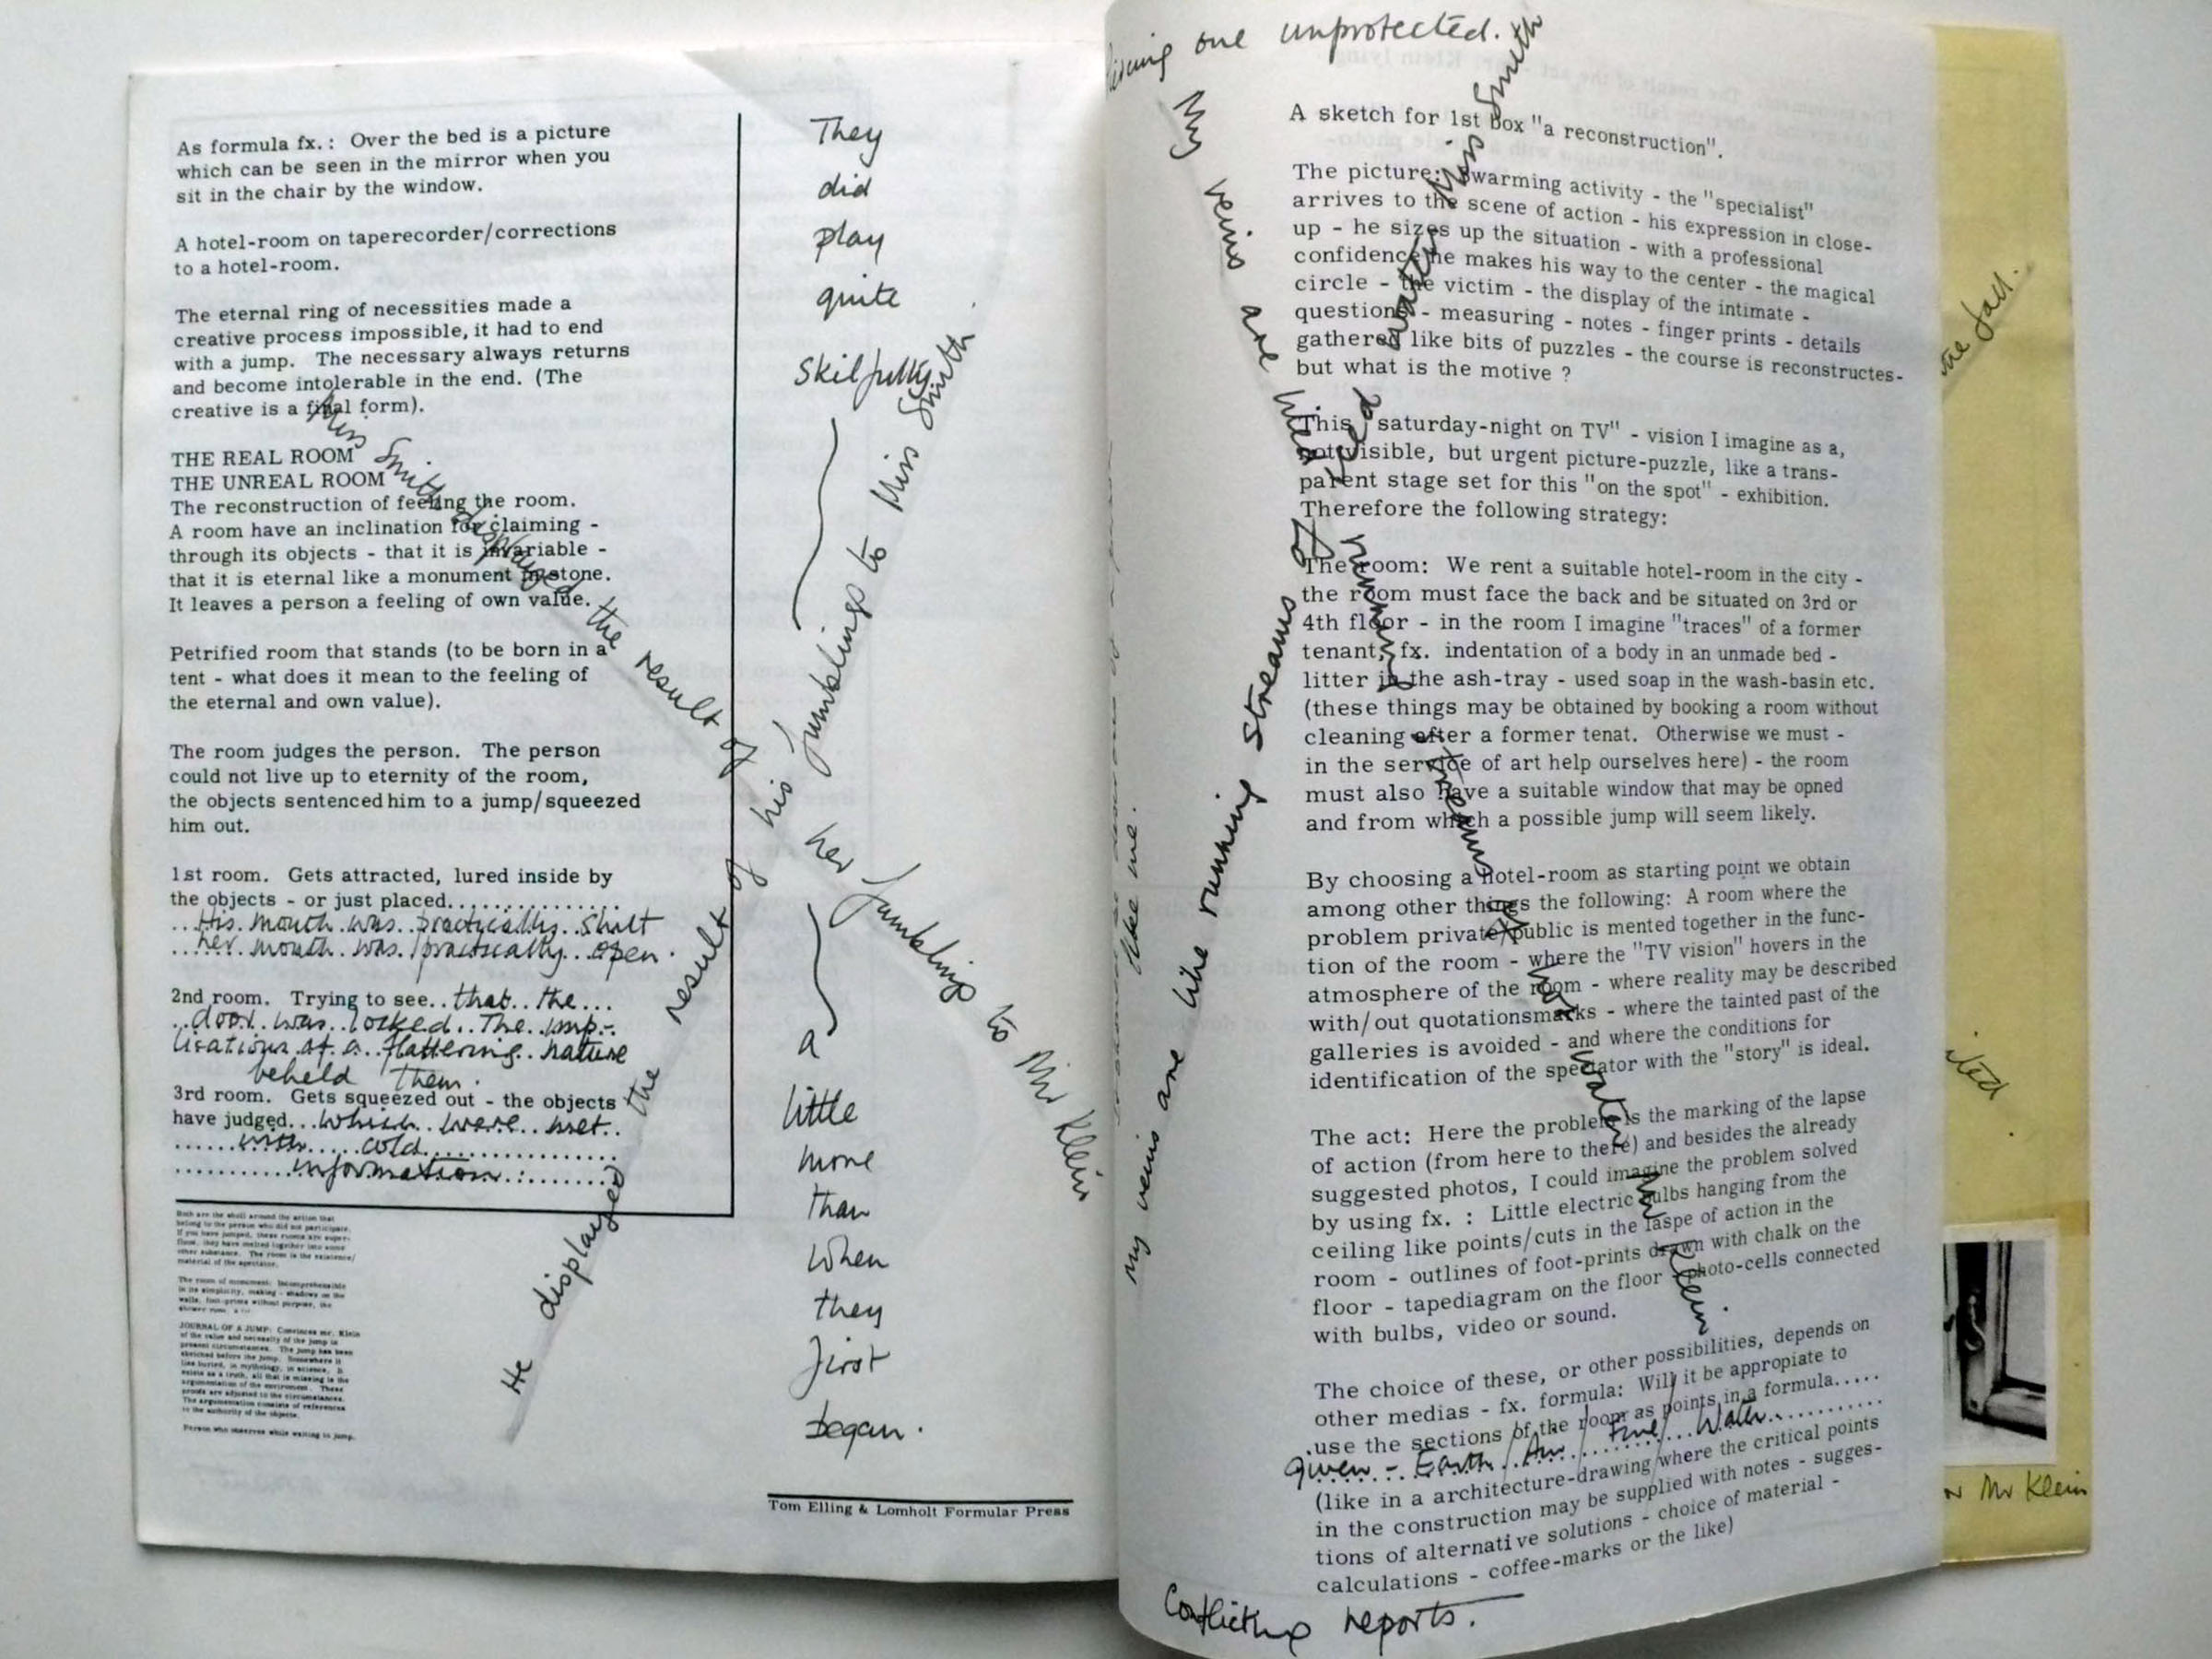 As formula fx.: Over the bed is a picture
which can be seen in the mirror when you
sit in the chair by the window.
A hotel-room on taperecorder/corrections
to a hotel-room.
The eternal ring of necessities made a
creative process impossible, it had to end
with a jump. The necessary always returns
and become intolerable in the end. (The
creative is a final form).
THE REAL ROOM
THE UNREAL ROOM
The reconstruction of feeling the room.
A room have an inclination for claiming -
through its objects - that it is invariable -
that it is eternal like a monument in stone.
It leaves a person a feeling of own value.
Petrified room that stands (to be born in a
tent - what does it mean to the feeling of
the eternal and own value).
The room judges the person. The person
could not live up to eternity of the room,
the objects sentenced him to a jump/squeezed
him out.
1st room. Gets attracted, lured inside by
the objects - or just placed...............
..His mouth was practically shut
..her mouth was practically open.
2nd room. Trying to see..that..the...
..door..was..locked..The..imp-
lications of a flattering nature
beheld them.
3rd room. Gets squeezed out - the objects
have judged...which..were..met..
......with.....cold................
..........information.:........
Both are the shell around the action that
belong to the person who did not participate.
If you have jumped, these rooms are super-
fluous, they have melted together into some
other substance. The room is the existence/
material of the spectator.
The room of monument: Incomprehensible
in its simplicity, making - shadows on the
walls, foot-prints without purpose, the
JOURNAL OF A JUMP: Convinces mr. Klein
of the value and necessity of the jump in
present circumstances. The jump has been
sketched before the jump. Somewhere it
lies buried, in mythology, in science, it
exists as a truth, all that is missing is the
argumentation of the environment. These
proofs are adjusted to the circumstances.
The argumentation consists of references
to the authority of the objects.
Person who observes while waiting to jump.
Miss Smith displayed the result of her fumbling to Mr Klein
He displayed the result of his fumblings to Miss Smith
They
did
play
quite
skilfully
a
little
more
than
when
they
first
began.
Tom Elling & Lomholt Formular Press
one unprotected.
My veins are like running streams of
My veins are like running streams of
red water Miss Smith
water Mr Klein.
like me.
A sketch for 1st box "a reconstruction".
The picture: Swarming activity - the "specialist"
arrives to the scene of action - his expression in close-
up - he sizes up the situation - with a professional
confidence he makes his way to the center - the magical
circle - the victim - the display of the intimate -
questions - measuring - notes - finger prints - details
gathered like bits of puzzles - the course is reconstructes-
but what is the motive ?
This "saturday-night on TV" - vision I imagine as a,
not visible, but urgent picture-puzzle, like a trans-
parent stage set for this "on the spot" - exhibition.
Therefore the following strategy:
The room: We rent a suitable hotel-room in the city -
the room must face the back and be situated on 3rd or
4th floor - in the room I imagine "traces" of a former
tenant, fx. indentation of a body in an unmade bed -
litter in the ash-tray - used soap in the wash-basin etc.
(these things may be obtained by booking a room without
cleaning after a former tenat. Otherwise we must -
in the service of art help ourselves here) - the room
must also have a suitable window that may be opned
and from which a possible jump will seem likely.
By choosing a hotel-room as starting point we obtain
among other things the following: A room where the
problem private/public is mented together in the func-
tion of the room - where the "TV vision" hovers in the
atmosphere of the room - where reality may be described
with/out quotationsmarks - where the tainted past of the
galleries is avoided - and where the conditions for
identification of the spectator with the "story" is ideal.
The act: Here the problem is the marking of the lapse
of action (from here to there) and besides the already
suggested photos, I could imagine the problem solved
by using fx. : Little electric bulbs hanging from the
ceiling like points/cuts in the laspe of action in the
room - outlines of foot-prints drawn with chalk on the
floor - tapediagram on the floor - photo-cells connected
with bulbs, video or sound.
The choice of these, or other possibilities, depends on
other medias - fx. formula: Will it be appropiate to
use the sections of the room as points in a formula.....
given - Earth / Air / Fire / Water..........
(like in a architecture-drawing where the critical points
in the construction may be supplied with notes - sugges-
tions of alternative solutions - choice of material -
calculations - coffee-marks or the like)
Conflicting reports.
the fall.
Mr Klein